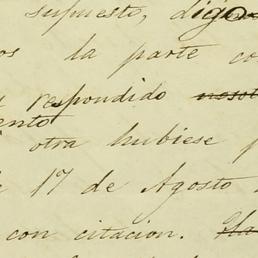 supuesto, digo
os la parte co
respondido
ento
otra hubiese p
17 de Agosto
con citacion.